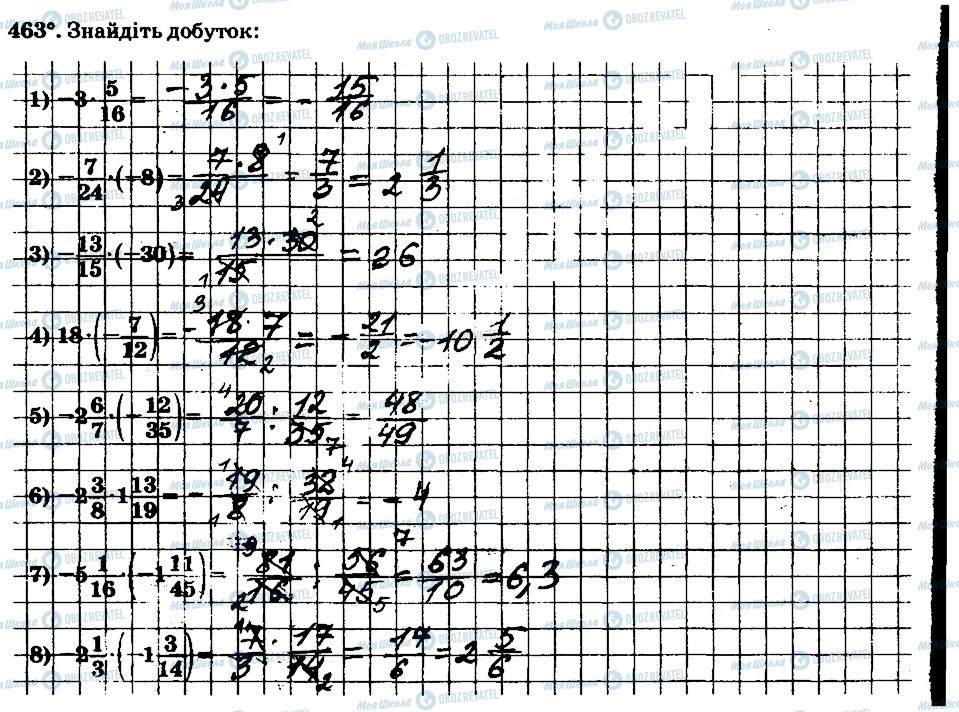 463°. Знайдіть добуток:
1) −3 · 5/16 = − 3·5/16 = − 15/16
2) − 7/24 · (−8) = 7·8/24 = 7/3 = 2 1/3
3) − 13/15 · (−30) = 13·30/15 = 26
4) 18 · (− 7/12) = − 18·7/12 = − 21/2 = −10 1/2
5) −2 6/7 · (− 12/35) = 20/7 · 12/35 = 48/49
6) −2 3/8 · 1 13/19 = − 19/8 · 32/19 = − 4
7) −5 1/16 · (−1 11/45) = 81/16 · 56/45 = 63/10 = 6,3
8) −2 1/3 · (−1 3/14) = 7/3 · 17/14 = 17/6 = 2 5/6